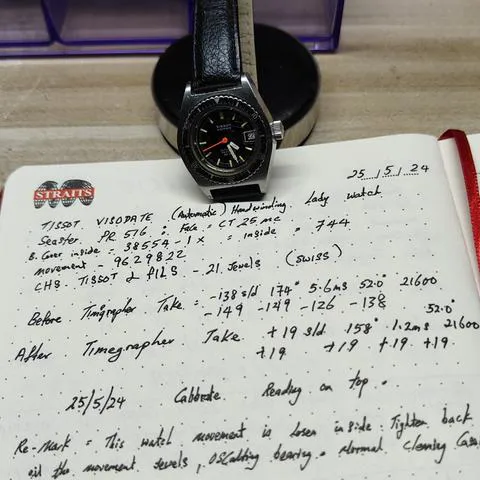 STRAITS
25/5/24
TISSOT VISODATE (Automatic) Handwinding. Lady Watch
Seastar PR 516 : Face = CT 25 mc
B. Cover inside = 38554-1x = inside = 744
movement - 9629822
CHS. TISSOT & FILS - 21 Jewels (SWISS)
Before Timigrapher Take = -138 s/d 174° 5.6ms 52.0° 21600
-149 -149 -126 -138
52.0°
After Timegrapher Take +19 s/d 158° 1.2ms 21600
+19 +19 +19 +19
25/5/24 Calibrate Reading on top.
Re-Mark = This watch movement is losen inside. Tighten back
oil the movement, Jewels, bearing. Normal Cleaning